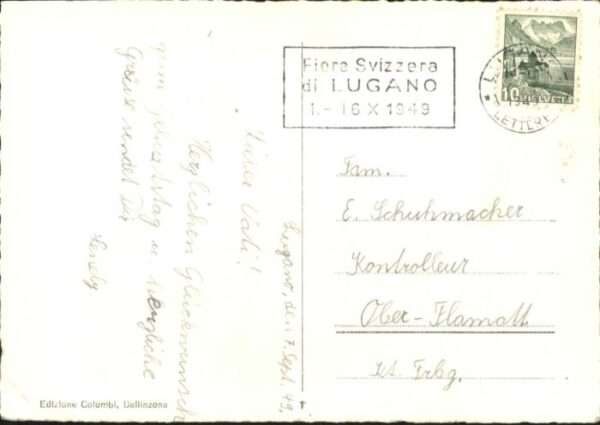 Lugano, den 7. Sept. 49.
Lieber Vati!
Herzlichen Glückwunsch
zum Geburtstag u. herzliche
Grüsse sendet Dir
Fiera Svizzera
di LUGANO
1.-16 X 1949
10 HELVETIA
LETTERE
Fam.
E. Schuhmacher
Kontrolleur
Ober-Flamatt
Kt. Frbg.
Edizione Colombi, Bellinzona